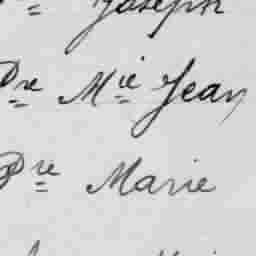 Joseph
Dre Mie Jean
Dre Marie